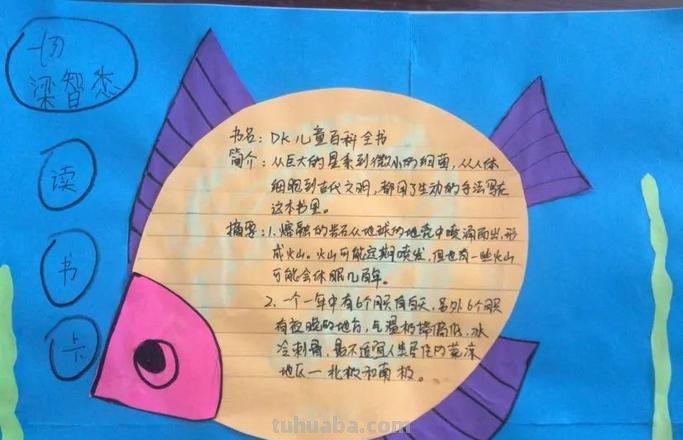 梁智杰
读
书
卡
书名：DK儿童百科全书
简介：从巨大的星系到微小的细菌，从人体
细胞到古代文明，都用了生动的手法写在
这本书里。
摘要：1.熔融的岩石从地球的地壳中喷涌而出，形
成火山。火山可能定期喷发，但也有一些火山
可能会休眠几百年。
2.一个一年中有6个月只有白天，另外6个月只
有夜晚的地方，气温极端偏低，水
冷刺骨，最不适宜人类居住的荒凉
地区一北极和南极。
tuhuaba.com